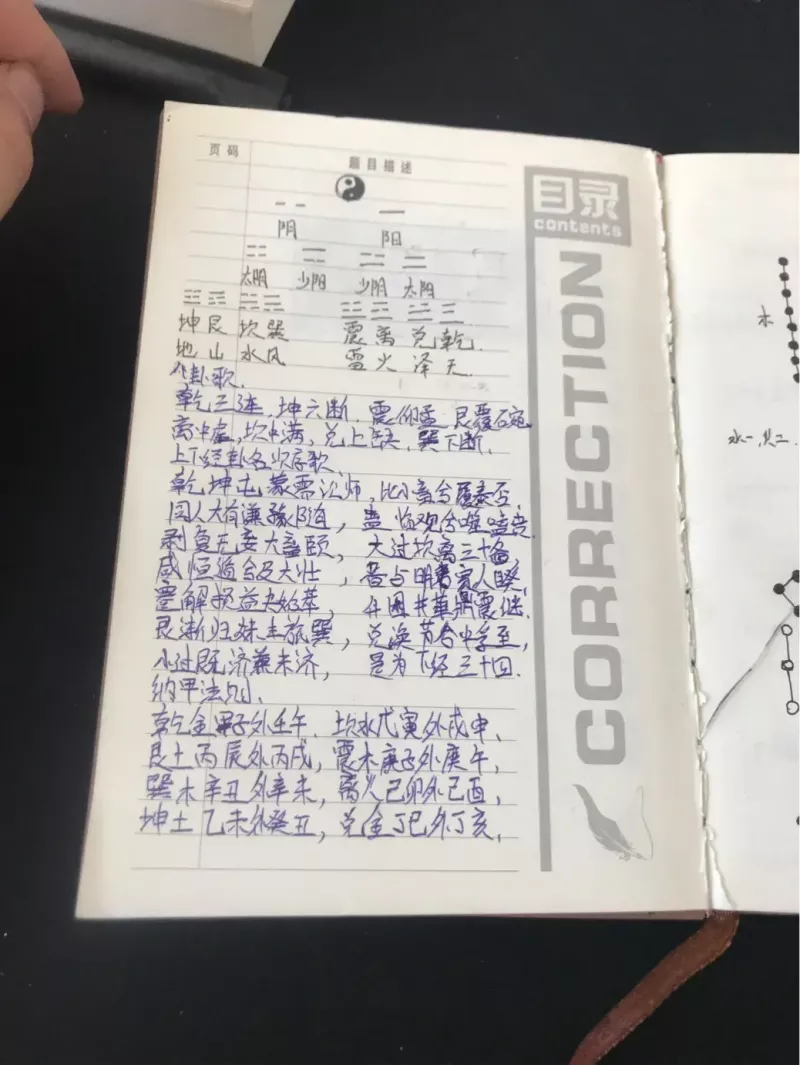 页码 题目描述
目录
contents
CORRECTION
阴 阳
太阴 少阳 少阴 太阳
坤艮 坎巽 震离 兑乾.
地山 水风 雷火 泽天.
八卦歌.
乾三连,坤六断,震仰盂,艮覆碗
离中虚,坎中满,兑上缺,巽下断,
上下经卦名次序歌
乾坤屯蒙需讼师,比小畜兮履泰否,
同人大有谦豫随,蛊临观兮噬嗑贲
剥复无妄大畜颐,大过坎离三十备
咸恒遁兮及大壮,晋与明夷家人睽
蹇解损益夬姤萃,升困井革鼎震继
艮渐归妹丰旅巽,兑涣节兮中孚至,
小过既济兼未济,是为下经三十四.
纳甲法则.
乾金甲子外壬午.坎水戊寅外戊申,
艮土丙辰外丙戌,震木庚子外庚午,
巽木辛丑外辛未,离火己卯外己酉,
坤土乙未外癸丑,兑金丁巳外丁亥,
水
水一.火二